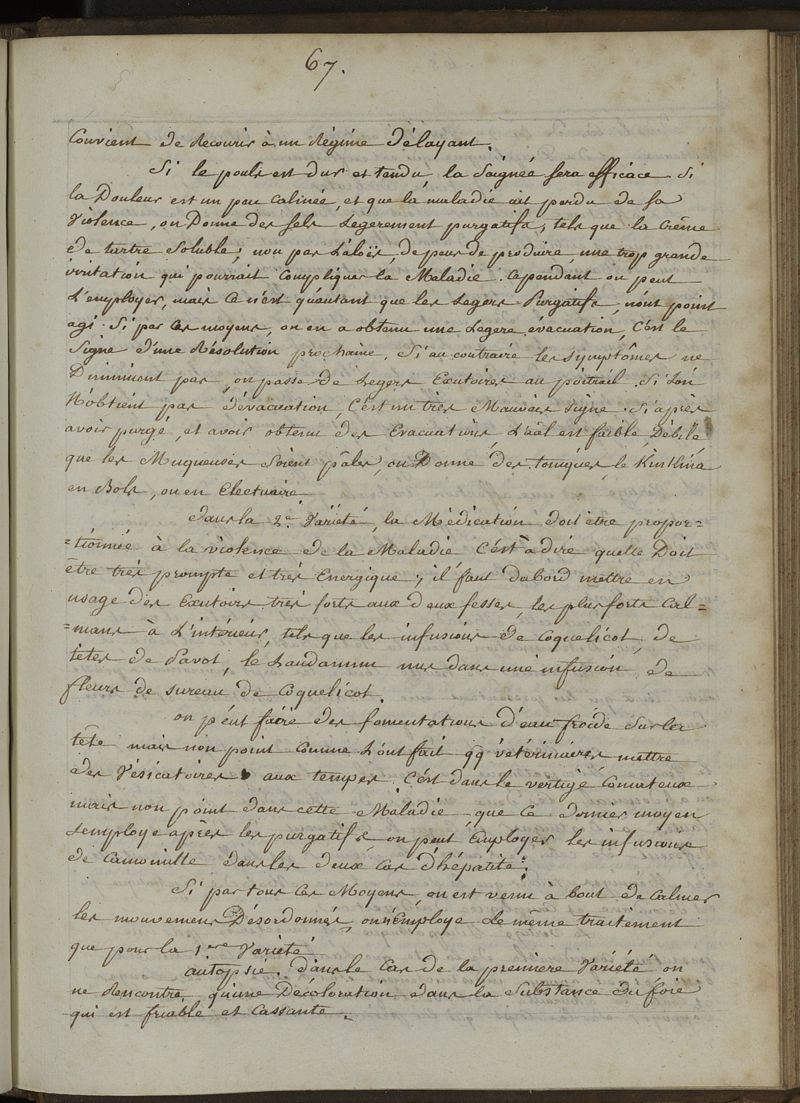 67.
Convient de Recourir à un Régime Délayant.
Si le pouls est dur et tendu, la Saignée sera efficace Si
la Douleur est un peu calmée, et que la maladie ait perdu de sa
Violence, on Donne des sels Legerement purgatifs, tels que la Crême
de tartre Soluble; non pas L'aloës, de peur de produire, une trop grande
irritation qui pourrait Compliquer la Maladie. Cependant on peut
L'employer, mais Ce n'est qu'autant que les Legers Purgatifs, n'ont point
agi. Si par Ces moyens, on en a obtenu une Legere évacuation, C'est le
Signe d'une Résolution prochaine. Si au contraire les symptômes ne
Diminuent pas, on passe de Legers Exutoires au poitrail. Si L'on
N'obtient pas d'évacuation, C'est un très Mauvais Signe. Si après
avoir purgé, et avoir obtenu des Evacuations, L'œil est faible Débile
que les Muqueuses Soient pâles, on Donne des toniques, le Kinkina
en Bols, ou en Electuaire.
Dans la 2e Variété, la Médication doit être propor=
=tionnée à la violence de la Maladie C'est à dire quelle Doit
être très prompte et très Energique; il faut Dabord mettre en
usage des Exutoirs très forts aux deux fesses, les plus forts Cal=
=mans à L'intérieur, tels que les infusions de Coquelicot, de
têtes de Pavot, le Laudanum mis dans une infusion, de
fleurs de sureau de Coquelicot.
on peut faire des fomentations d'eau froide Sur la
tête mais non point Comme L'ont fait qq vétérinaires, mettre
des Vésicatoires aux tempes. C'est dans le vertige Comateux
mais non point dans cette Maladie que Ce dernier moyen
s'employe après les purgatifs, on peut Employer les infusions
de Camomille dans les deux cas d'hépatite.
Si par tous Ces Moyens, on est venu à bout de Calmer
les mouvemens Désordonnés, on Employe Le même traitement
que pour la 1ere Variété
autopsie. Dans le Cas de la premiere Variété on
ne Rencontre, qu'une Décoloration dans la Substance du foie
qui est friable et Cassante.